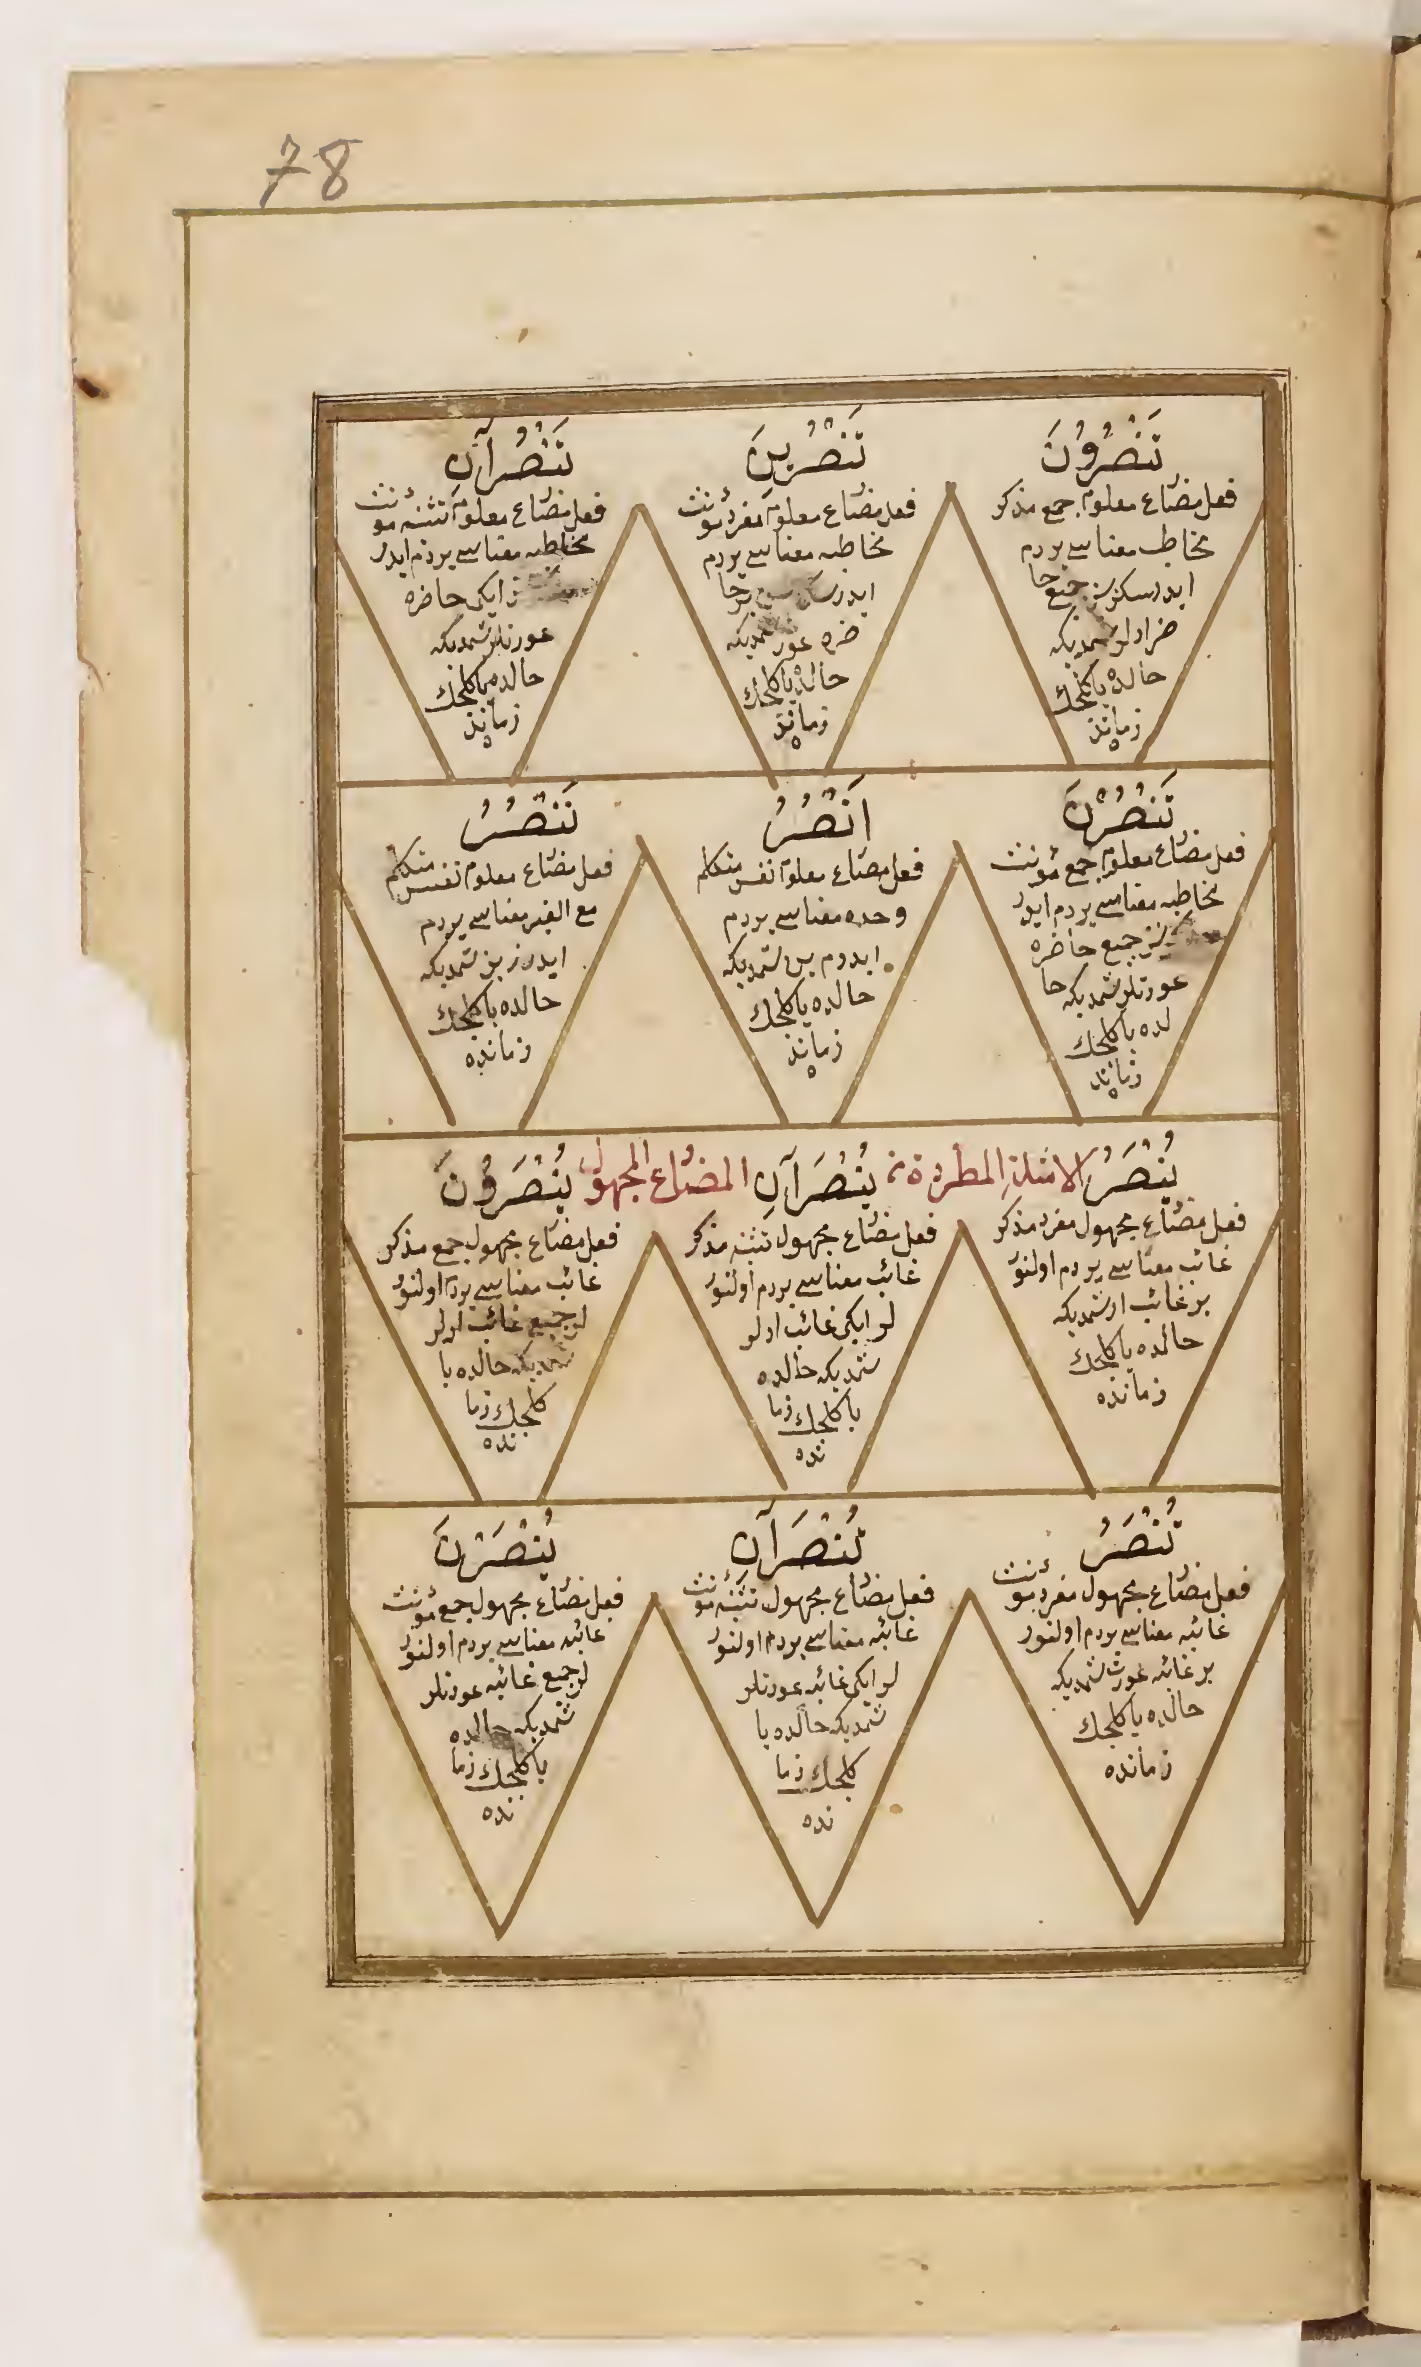 78
تَنْصُرُونَ
فعل مضارع معلوم جمع مذكر
مخاطب معناسى يردم
ايدرسكز سز جميع حا
ضر ارلر شمديكه
حالده يا كلجك
زمانده
تَنْصُرِينَ
فعل مضارع معلوم مفرد مؤنث
مخاطبه معناسى يردم
ايدرسك سن بر حا
ضره عورت شمديكه
حالده يا كلجك
زمانده
تَنْصُرَانِ
فعل مضارع معلوم تثنيه مؤنث
مخاطبه معناسى يردم ايدر
ايكى حاضره
عورتلر شمديكه
حالده يا كلجك
زمانده
تَنْصُرْنَ
فعل مضارع معلوم جمع مؤنث
مخاطبه معناسى يردم ايدر
سز جميع حاضره
عورتلر شمديكه حا
لده يا كلجك
زمانده
اَنْصُرُ
فعل مضارع معلوم نفس متكلم
وحده معناسى يردم
ايدرم بن شمديكه
حالده يا كلجك
زمانده
نَنْصُرُ
فعل مضارع معلوم نفس متكلم
مع الغير معناسى يردم
ايدرز بز شمديكه
حالده يا كلجك
زمانده
يُنْصَرُ الامثلة المطردة يُنْصَرَانِ المضارع المجهول يُنْصَرُونَ
فعل مضارع مجهول مفرد مذكر
غائب معناسى يردم اولنور
بر غائب ار شمديكه
حالده يا كلجك
زمانده
فعل مضارع مجهول تثنيه مذكر
غائب معناسى يردم اولنور
لر ايكى غائب ارلر
شمديكه حالده
يا كلجك زما
نده
فعل مضارع مجهول جمع مذكر
غائب معناسى يردم اولنور
لر جميع غائب ارلر
شمديكه حالده يا
كلجك زما
نده
تُنْصَرُ
فعل مضارع مجهول مفرد مؤنث
غائبه معناسى يردم اولنور
بر غائبه عورت شمديكه
حالده يا كلجك
زمانده
تُنْصَرَانِ
فعل مضارع مجهول تثنيه مؤنث
غائبه معناسى يردم اولنور
لر ايكى غائبه عورتلر
شمديكه حالده يا
كلجك زما
نده
يُنْصَرْنَ
فعل مضارع مجهول جمع مؤنث
غائبه معناسى يردم اولنور
لر جميع غائبه عورتلر
شمديكه حالده
يا كلجك زما
نده